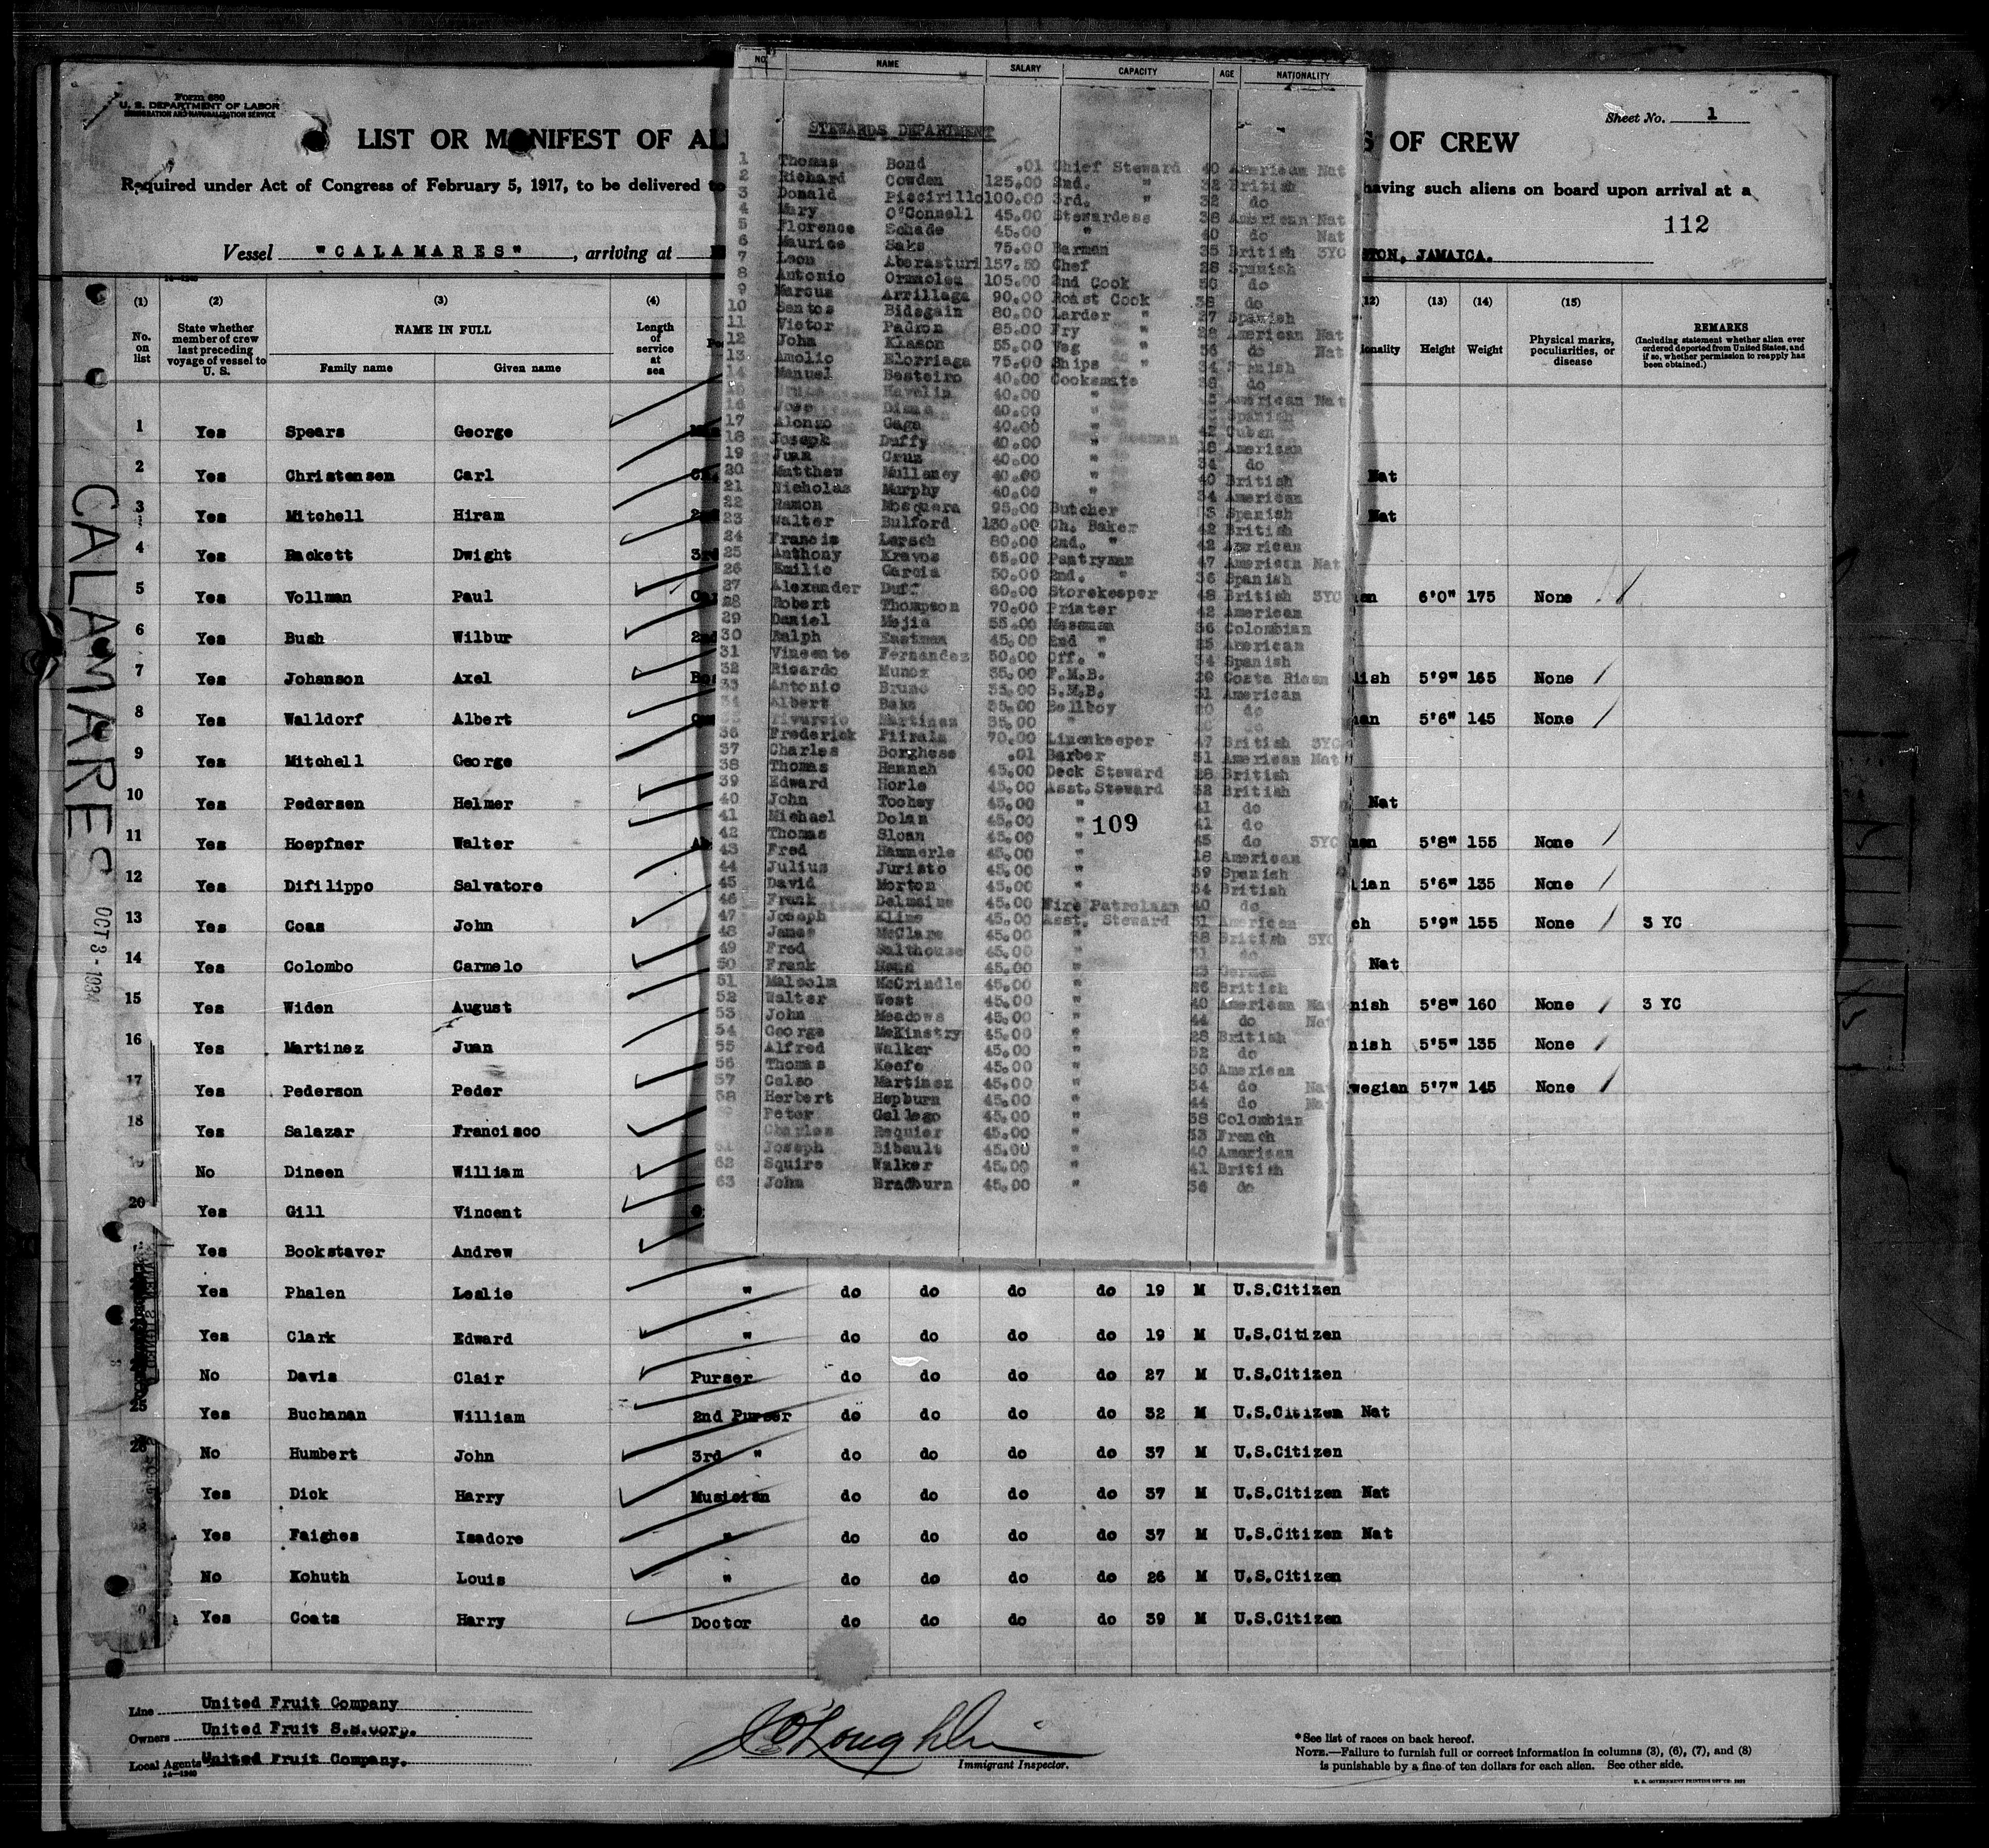 Form 680
U. S. DEPARTMENT OF LABOR
IMMIGRATION AND NATURALIZATION SERVICE
LIST OR MANIFEST OF AL
S OF CREW
Sheet No. 1
Required under Act of Congress of February 5, 1917, to be delivered to
having such aliens on board upon arrival at a
112
Vessel "CALAMARES", arriving at
STON, JAMAICA.
14-1240
(1) (2) (3) (4) (12) (13) (14) (15)
No. on list
State whether member of crew last preceding voyage of vessel to U. S.
NAME IN FULL
Family name Given name
Length of service at sea
Po
ionality Height Weight
Physical marks, peculiarities, or disease
REMARKS
(Including statement whether alien ever ordered deported from United States, and if so, whether permission to reapply has been obtained.)
1 Yes Spears George
2 Yes Christensen Carl Nat
3 Yes Mitchell Hiram 2nd Nat
4 Yes Hackett Dwight 3rd
5 Yes Vollman Paul 6'0" 175 None
6 Yes Bush Wilbur 2nd
7 Yes Johanson Axel Bo lish 5'9" 165 None
8 Yes Walldorf Albert an 5'6" 145 None
9 Yes Mitchell George
10 Yes Pedersen Helmer Nat
11 Yes Hoepfner Walter 5'8" 155 None
12 Yes Difilippo Salvatore lian 5'6" 135 None
13 Yes Coas John ch 5'9" 155 None 3 YC
14 Yes Colombo Carmelo Nat
15 Yes Widen August nish 5'8" 160 None 3 YC
16 Yes Martinez Juan nish 5'5" 135 None
17 Yes Pederson Peder wegian 5'7" 145 None
18 Yes Salazar Francisco
19 No Dineen William
20 Yes Gill Vincent
Yes Bookstaver Andrew
Yes Phalen Leslie " do do do do 19 M U.S.Citizen
Yes Clark Edward " do do do do 19 M U.S.Citizen
No Davis Clair Purser do do do do 27 M U.S.Citizen
25 Yes Buchanan William 2nd Purser do do do do 32 M U.S.Citizen Nat
26 No Humbert John 3rd " do do do do 37 M U.S.Citizen
Yes Dick Harry Musician do do do do 37 M U.S.Citizen Nat
Yes Faighes Isadore " do do do do 37 M U.S.Citizen Nat
No Kohuth Louis " do do do do 26 M U.S.Citizen
Yes Coats Harry Doctor do do do do 39 M U.S.Citizen
CALAMARES
OCT 3 - 1934
NO. NAME SALARY CAPACITY AGE NATIONALITY
STEWARDS DEPARTMENT
1 Thomas Bond .01 Chief Steward 40 American Nat
2 Richard Cowden 125.00 2nd. " 32 British
3 Donald Piscirillo 100.00 3rd. " 32 do
4 Mary O'Connell 45.00 Stewardess 38 American Nat
5 Florence Schade 45.00 " 40 do Nat
6 Maurice Saks 75.00 Barman 35 British 3YC
7 Leon Aberasturi 157.50 Chef 28 Spanish
8 Antonio Ormolea 105.00 2nd Cook do
9 Marcus Arrillaga 90.00 Roast Cook 38 do
10 Santos Bidegain 80.00 Larder " 27 Spanish
11 Victor Padron 85.00 Fry " American Nat
12 John Klason 55.00 Veg " do Nat
13 Amolio Elorriaga 75.00 Ships " 34 Spanish
14 Manuel Besteiro 40.00 Cooksmate do
Havelin 40.00 " American Nat
16 Jose 40.00 " Spanish
17 Alonzo Gaga 40.00 " 42 Cuban
18 Joseph Duffy 40.00 " 18 American
19 Juan Cruz 40.00 " 34 do
20 Matthew Mullaney 40.00 " 40 British
21 Nicholas Murphy 40.00 " 34 American
22 Ramon Mosquera 95.00 Butcher Spanish
23 Walter Bulford 130.00 Ch. Baker 42 British
24 Francis Lersch 80.00 2nd. " 42 American
25 Anthony Kravos 65.00 Pantryman 47 American Nat
26 Emilio Garcia 50.00 2nd. " 36 Spanish
27 Alexander Duff 60.00 Storekeeper 48 British 3YC
28 Robert Thompson 70.00 Printer 42 American
29 Daniel Mejia 55.00 Messman 36 Colombian
30 Ralph Eastman 45.00 2nd " 25 American
31 Vincente Fernandez 50.00 Off. " 34 Spanish
32 Ricardo Munoz 35.00 F.M.B. Costa Rican
33 Antonio Bruno 35.00 S.M.B. 31 American
34 Albert 35.00 Bellboy do
Tivurcio Martinez 35.00 "
36 Frederick Piirala 70.00 Linenkeeper 47 British 3YC
37 Charles Borghese .01 Barber 51 American Nat
38 Thomas Hannah 45.00 Deck Steward 28 British
39 Edward Horle 45.00 Asst.Steward 32 British
40 John Toohey 45.00 " 41 do
41 Michael Dolan 45.00 " 41 do
109
42 Thomas Sloan 45.00 " 45 do 3YC
43 Fred Hammerle 45.00 " 18 American
44 Julius Juristo 45.00 " 39 Spanish
45 David Morton 45.00 " 34 British
46 Frank Delmaine 45.00 Fire Patrolman 40 do
47 Joseph Kline 45.00 Asst. Steward 31 American
48 James McClare 45.00 " 38 British 3YC
49 Fred Salthouse 45.00 " do
50 Frank 45.00 " German
51 Malcolm McCrindle 45.00 " 26 British
52 Walter West 45.00 " 40 American Nat
53 John Meadows 45.00 " 44 do Nat
54 George McKinstry 45.00 " 28 British
55 Alfred Walker 45.00 " 32 do
56 Thomas Keefe 45.00 " 30 American
57 Celso Martinez 45.00 " 34 do Nat
58 Herbert Hepburn 45.00 " 44 do Nat
Peter Gallego 45.00 " 38 Colombian
Charles Requier 45.00 " French
61 Joseph Bibault 45.00 " 40 American
62 Squire Walker 45.00 " 41 British
63 John Bradburn 45.00 " 36 do
Line United Fruit Company
Owners United Fruit S.S.Corp.
Local Agents United Fruit Company.
14-1240
Immigrant Inspector.
*See list of races on back hereof.
NOTE.—Failure to furnish full or correct information in columns (3), (6), (7), and (8)
is punishable by a fine of ten dollars for each alien. See other side.